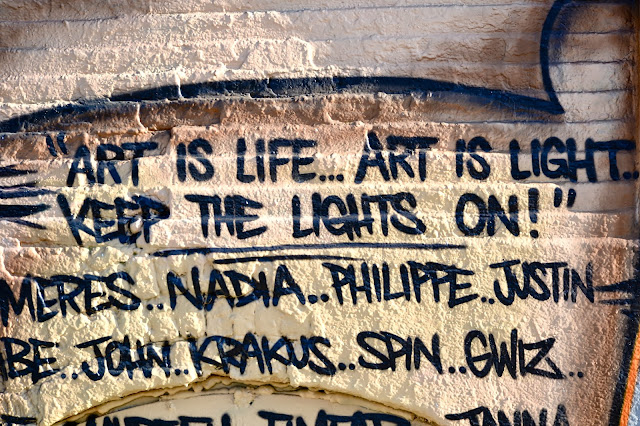 "ART IS LIFE... ART IS LIGHT..
KEEP THE LIGHTS ON!"
MERES..NADIA..PHILIPPE..JUSTIN
BE..JOHN..KRAKUS..SPIN..GWIZ..